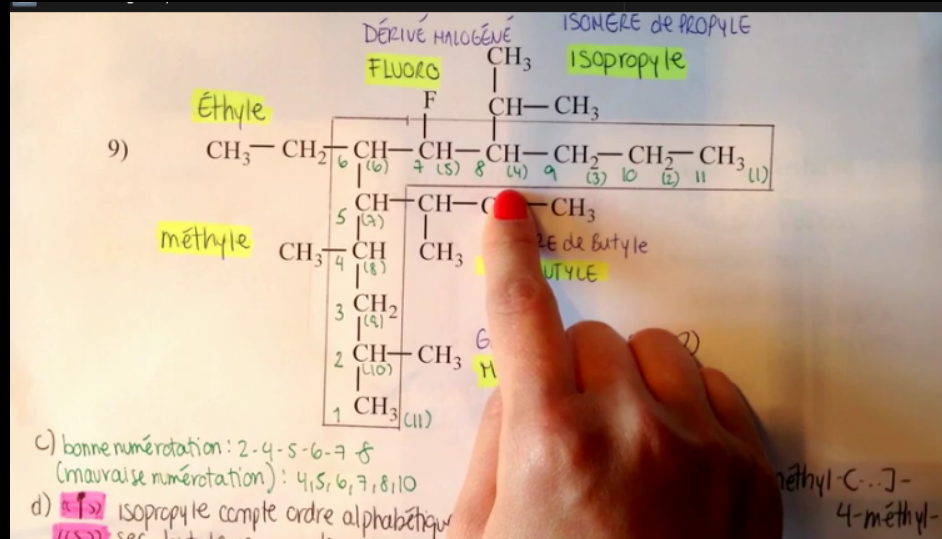 DÉRIVÉ HALOGÉNÉ ISOMÈRE de PROPYLE
FLUORO CH3 Isopropyle
Éthyle F CH—CH3
9) CH3—CH2—CH—CH—CH—CH2—CH2—CH3
6 (6) 7 (5) 8 (4) 9 (3) 10 (2) 11 (1)
CH—CH—C —CH3
5 (7)
méthyle CH3—CH CH3 RE de Butyle
4 (8) UTYLE
3 CH2
(9)
2 CH—CH3
(10)
1 CH3 (11)
c) bonne numérotation : 2-4-5-6-7 8
(mauvaise numérotation) : 4,5,6,7,8,10
méthyl-(...]-
d) «i» isopropyle compte ordre alphabétiqu
4-méthyl-